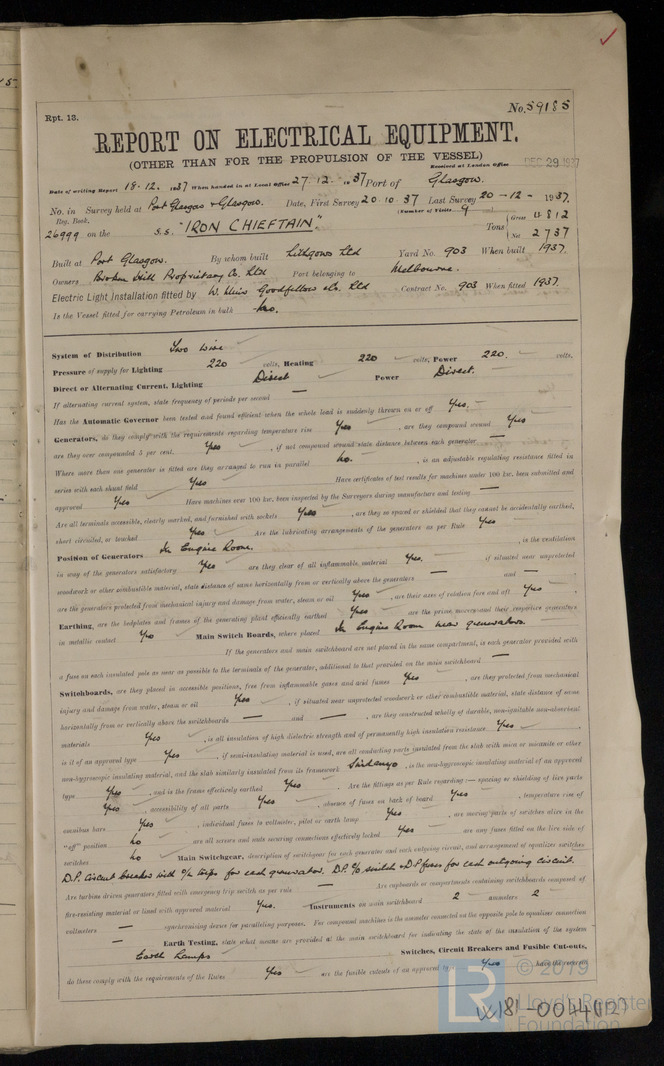 Rpt. 13.
No. 59185
REPORT ON ELECTRICAL EQUIPMENT.
(OTHER THAN FOR THE PROPULSION OF THE VESSEL)
Received at London Office DEC 29 1937
Date of writing Report 18.12.1937 When handed in at Local Office 27.12.1937 Port of Glasgow.
No. in Survey held at Port Glasgow & Glasgow. Date, First Survey 20.10.37 Last Survey 20-12-1937.
Reg. Book. (Number of Visits 9
26999 on the S.S. "IRON CHIEFTAIN". Tons Gross 4812
Net 2737
Built at Port Glasgow. By whom built Lithgows Ltd Yard No. 903 When built 1937.
Owners Broken Hill Proprietary Co. Ltd Port belonging to Melbourne.
Electric Light Installation fitted by Goodfellow & Co. Ltd Contract No. 903 When fitted 1937.
Is the Vessel fitted for carrying Petroleum in bulk No.
System of Distribution Two Wire
Pressure of supply for Lighting 220 volts, Heating 220 volts, Power 220. volts.
Direct or Alternating Current, Lighting Direct Power Direct.
If alternating current system, state frequency of periods per second —
Has the Automatic Governor been tested and found efficient when the whole load is suddenly thrown on or off Yes.
Generators, do they comply with the requirements regarding temperature rise Yes, are they compound wound Yes
are they over compounded 5 per cent. Yes, if not compound wound state distance between each generator —
Where more than one generator is fitted are they arranged to run in parallel No., is an adjustable regulating resistance fitted in
series with each shunt field Yes Have certificates of test results for machines under 100 kw. been submitted and
approved Yes Have machines over 100 kw. been inspected by the Surveyors during manufacture and testing —
Are all terminals accessible, clearly marked, and furnished with sockets Yes, are they so spaced or shielded that they cannot be accidentally earthed,
short circuited, or touched Yes Are the lubricating arrangements of the generators as per Rule Yes
Position of Generators In Engine Room. , is the ventilation
in way of the generators satisfactory Yes are they clear of all inflammable material Yes. if situated near unprotected
woodwork or other combustible material, state distance of same horizontally from or vertically above the generators — and —
are the generators protected from mechanical injury and damage from water, steam or oil Yes, are their axes of rotation fore and aft Yes
Earthing, are the bedplates and frames of the generating plant efficiently earthed Yes are the prime movers and their respective generators
in metallic contact Yes Main Switch Boards, where placed In Engine Room near generators.
If the generators and main switchboard are not placed in the same compartment, is each generator provided with
a fuse on each insulated pole as near as possible to the terminals of the generator, additional to that provided on the main switchboard —
Switchboards, are they placed in accessible positions, free from inflammable gases and acid fumes Yes, are they protected from mechanical
injury and damage from water, steam or oil Yes, if situated near unprotected woodwork or other combustible material, state distance of same
horizontally from or vertically above the switchboards — and —, are they constructed wholly of durable, non-ignitable non-absorbent
materials Yes, is all insulation of high dielectric strength and of permanently high insulation resistance Yes
is it of an approved type Yes, if semi-insulating material is used, are all conducting parts insulated from the slab with mica or micanite or other
non-hygroscopic insulating material, and the slab similarly insulated from its framework Sindanyo, is the non-hygroscopic insulating material of an approved
type Yes, and is the frame effectively earthed Yes Are the fittings as per Rule regarding:— spacing or shielding of live parts
Yes, accessibility of all parts Yes, absence of fuses on back of board Yes, temperature rise of
omnibus bars Yes, individual fuses to voltmeter, pilot or earth lamp Yes, are moving parts of switches alive in the
"off" position No are all screws and nuts securing connections effectively locked Yes are any fuses fitted on the live side of
switches No Main Switchgear, description of switchgear for each generator and each outgoing circuit, and arrangement of equaliser switches
D.P. circuit breaker with O/L trips for each generator. D.P. C/O switch & D.P. fuses for each outgoing circuit.
Are turbine driven generators fitted with emergency trip switch as per rule — Are cupboards or compartments containing switchboards composed of
fire-resisting material or lined with approved material Yes. Instruments on main switchboard 2 ammeters 2
voltmeters — synchronising device for paralleling purposes. For compound machines is the ammeter connected on the opposite pole to equaliser connection
— Earth Testing, state what means are provided at the main switchboard for indicating the state of the insulation of the system
Earth Lamps Switches, Circuit Breakers and Fusible Cut-outs,
do these comply with the requirements of the Rules Yes are the fusible cutouts of an approved type Yes
© 2019
LR Lloyd's Register
Foundation